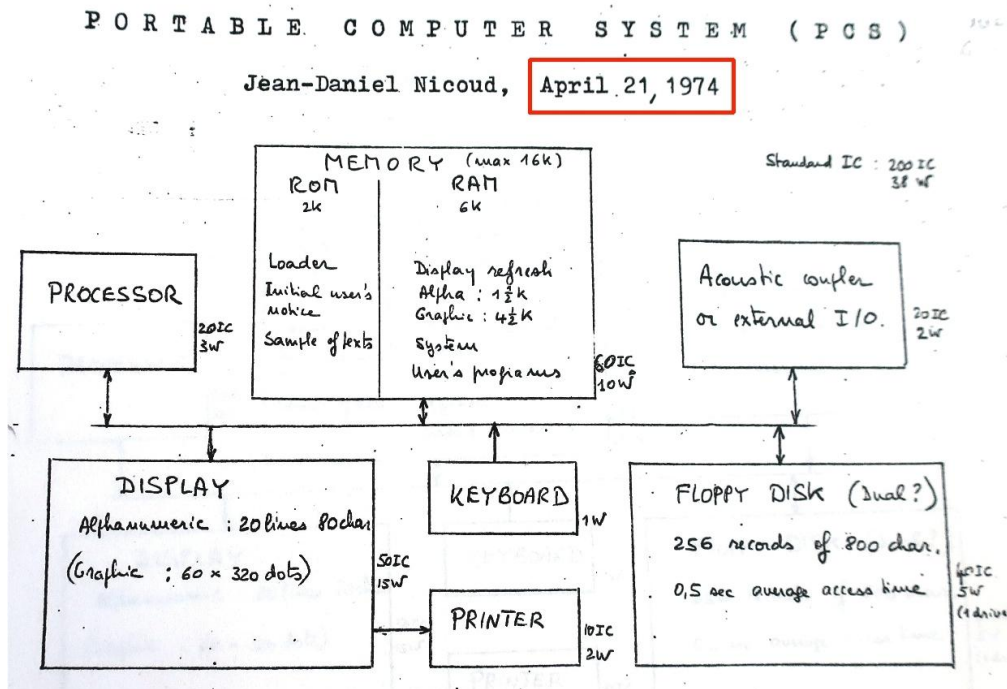 PORTABLE COMPUTER SYSTEM (PCS)
Jean-Daniel Nicoud, April 21, 1974
Standard IC : 200 IC
38 W
MEMORY (max 16K)
ROM
2K
Loader
Initial user's
notice
Sample of texts
RAM
6K
Display refresh
Alpha : 1½K
Graphic : 4½K
System
User's programs
60IC
10W
PROCESSOR
20IC
3W
Acoustic coupler
or external I/O.
20IC
2W
DISPLAY
Alphanumeric : 20 lines 80 char
(Graphic : 60 × 320 dots)
50IC
15W
KEYBOARD
1W
PRINTER
10IC
2W
FLOPPY DISK (Dual?)
256 records of 800 char.
0,5 sec average access time
IC
5W
(1 drive